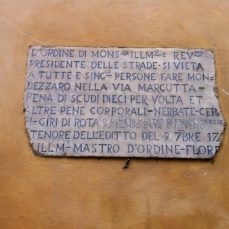 D'ORDINE DI MONS RE ILLMO E REVMO
PRESIDENTE DELLE STRADE·SI VIETA
A TUTTE E SING· PERSONE FARE MON
DEZZARO NELLA VIA MARCUTTA
PENA DI SCUDI DIECI PER VOLTA ET
LTRE PENE CORPORALI·NERBATE·CEP
I·GIRI DI ROTA
TENORE DELL'EDITTO DEL 9 7BRE 17
ILLM·MASTRO D'ORDINE·FLORE